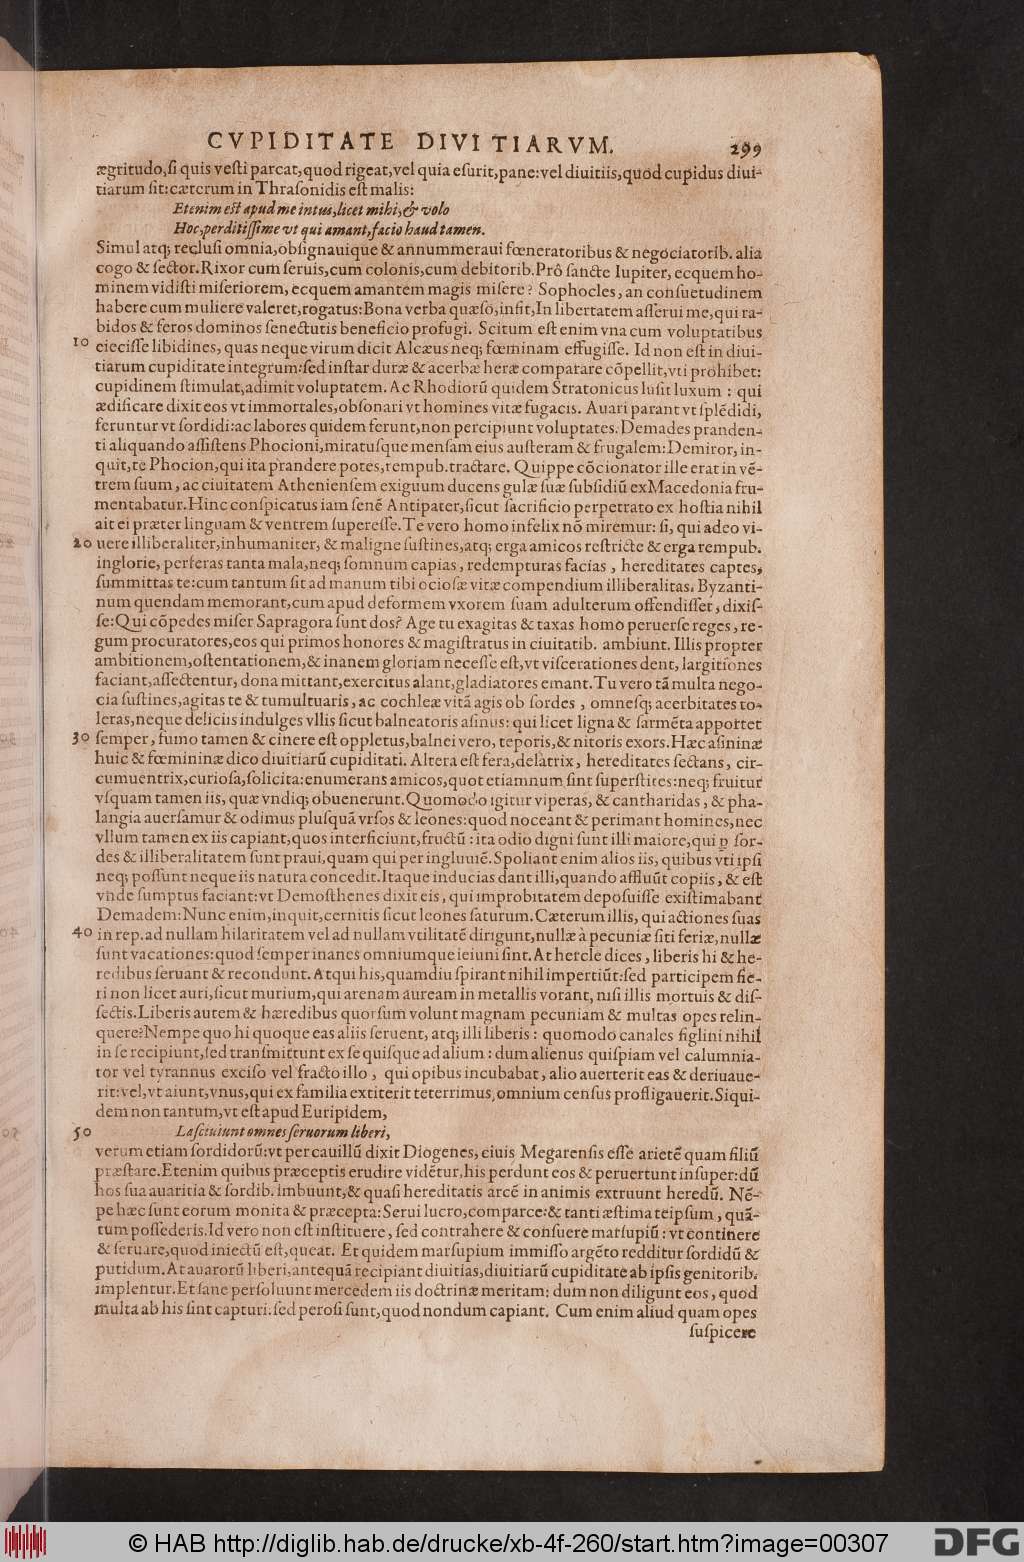 CVPIDITATE DIVITIARVM. 299
ægritudo, si quis vesti parcat, quod rigeat, vel quia esurit, pane: vel diuitiis, quod cupidus diui-
tiarum sit: cæterum in Thrasonidis est malis:
Etenim est apud me intus, licet mihi, & volo
Hoc, perditissime vt qui amant, facio haud tamen.
Simul atq; reclusi omnia, obsignauique & annummeraui fœneratoribus & negociatorib. alia
cogo & sector. Rixor cum seruis, cum colonis, cum debitorib. Prô sancte Iupiter, ecquem ho-
minem vidisti miseriorem, ecquem amantem magis misere? Sophocles, an consuetudinem
habere cum muliere valeret, rogatus: Bona verba quæso, infit, In libertatem asserui me, qui ra-
bidos & feros dominos senectutis beneficio profugi. Scitum est enim vna cum voluptatibus
10 eiecisse libidines, quas neque virum dicit Alcæus neq; fœminam effugisse. Id non est in diui-
tiarum cupiditate integrum: sed instar duræ & acerbæ heræ comparare cõpellit, vti prohibet:
cupidinem stimulat, adimit voluptatem. Ac Rhodiorũ quidem Stratonicus lusit luxum: qui
ædificare dixit eos vt immortales, obsonari vt homines vitæ fugacis. Auari parant vt splẽdidi,
feruntur vt sordidi: ac labores quidem ferunt, non percipiunt voluptates. Demades pranden-
ti aliquando assistens Phocioni, miratusque mensam eius austeram & frugalem: Demiror, in-
quit, te Phocion, qui ita prandere potes, rempub. tractare. Quippe cõcionator ille erat in vẽ-
trem suum, ac ciuitatem Atheniensem exiguum ducens gulæ suæ subsidiũ ex Macedonia fru-
mentabatur. Hinc conspicatus iam senẽ Antipater, sicut sacrificio perpetrato ex hostia nihil
ait ei præter linguam & ventrem superesse. Te vero homo infelix nõ miremur: si, qui adeo vi-
20 uere illiberaliter, inhumaniter, & maligne sustines, atq; erga amicos restricte & erga rempub.
inglorie, perferas tanta mala, neq; somnum capias, redempturas facias, hereditates captes,
summittas te: cum tantum sit ad manum tibi ociosæ vitæ compendium illiberalitas. Byzanti-
num quendam memorant, cum apud deformem vxorem suam adulterum offendisset, dixis-
se: Qui cõpedes miser Sapragora sunt dos? Age tu exagitas & taxas homo peruerse reges, re-
gum procuratores, eos qui primos honores & magistratus in ciuitatib. ambiunt. Illis propter
ambitionem, ostentationem, & inanem gloriam necesse est, vt viscerationes dent, largitiones
faciant, assectentur, dona mittant, exercitus alant, gladiatores emant. Tu vero tã multa nego-
cia sustines, agitas te & tumultuaris, ac cochleæ vitã agis ob sordes, omnesq; acerbitates to-
leras, neque deliciis indulges vllis sicut balneatoris asinus: qui licet ligna & sarmẽta apportet
30 semper, fumo tamen & cinere est oppletus, balnei vero, teporis, & nitoris exors. Hæc asininæ
huic & fœmininæ dico diuitiarũ cupiditati. Altera est fera, delatrix, hereditates sectans, cir-
cumuentrix, curiosa, solicita: enumerans amicos, quot etiamnum sint superstites: neq; fruitur
vsquam tamen iis, quæ vndiq; obuenerunt. Quomodo igitur viperas, & cantharidas, & pha-
langia auersamur & odimus plusquã vrsos & leones: quod noceant & perimant homines, nec
vllum tamen ex iis capiant, quos interficiunt, fructũ: ita odio digni sunt illi maiore, qui ꝑ sor-
des & illiberalitatem sunt praui, quam qui per ingluuiẽ. Spoliant enim alios iis, quibus vti ipsi
neq; possunt neque iis natura concedit. Itaque inducias dant illi, quando affluũt copiis, & est
vnde sumptus faciant: vt Demosthenes dixit eis, qui improbitatem deposuisse existimabant
Demadem: Nunc enim, inquit, cernitis sicut leones saturum. Cæterum illis, qui actiones suas
40 in rep. ad nullam hilaritatem vel ad nullam vtilitatẽ dirigunt, nullæ à pecuniæ siti feriæ, nullæ
sunt vacationes: quod semper inanes omniumque ieiuni sint. At hercle dices, liberis hi & he-
redibus seruant & recondunt. Atqui his, quamdiu spirant nihil impertiũt: sed participem fie-
ri non licet auri, sicut murium, qui arenam auream in metallis vorant, nisi illis mortuis & dis-
sectis. Liberis autem & hæredibus quorsum volunt magnam pecuniam & multas opes relin-
quere? Nempe quo hi quoque eas aliis seruent, atq; illi liberis: quomodo canales figlini nihil
in se recipiunt, sed transmittunt ex se quisque ad alium: dum alienus quispiam vel calumnia-
tor vel tyrannus exciso vel fracto illo, qui opibus incubabat, alio auerterit eas & deriuaue-
rit: vel, vt aiunt, vnus, qui ex familia extiterit teterrimus, omnium census profligauerit. Siqui-
dem non tantum, vt est apud Euripidem,
50 Lasciuiunt omnes seruorum liberi,
verum etiam sordidorũ: vt per cauillũ dixit Diogenes, ciuis Megarensis esse arietẽ quam filiũ
præstare. Etenim quibus præceptis erudire vidẽtur, his perdunt eos & peruertunt insuper: dũ
hos sua auaritia & sordib. imbuunt, & quasi hereditatis arcẽ in animis extruunt heredũ. Nẽ-
pe hæc sunt eorum monita & præcepta: Serui lucro, comparce: & tanti æstima teipsum, quã-
tum possederis. Id vero non est instituere, sed contrahere & consuere marsupiũ: vt continere
& seruare, quod iniectũ est, queat. Et quidem marsupium immisso argẽto redditur sordidũ &
putidum. At auarorũ liberi, antequã recipiant diuitias, diuitiarũ cupiditate ab ipsis genitorib.
implentur. Et sane persoluunt mercedem iis doctrinæ meritam: dum non diligunt eos, quod
multa ab his sint capturi: sed perosi sunt, quod nondum capiant. Cum enim aliud quam opes
suspicere
© HAB http://diglib.hab.de/drucke/xb-4f-260/start.htm?image=00307
DFG